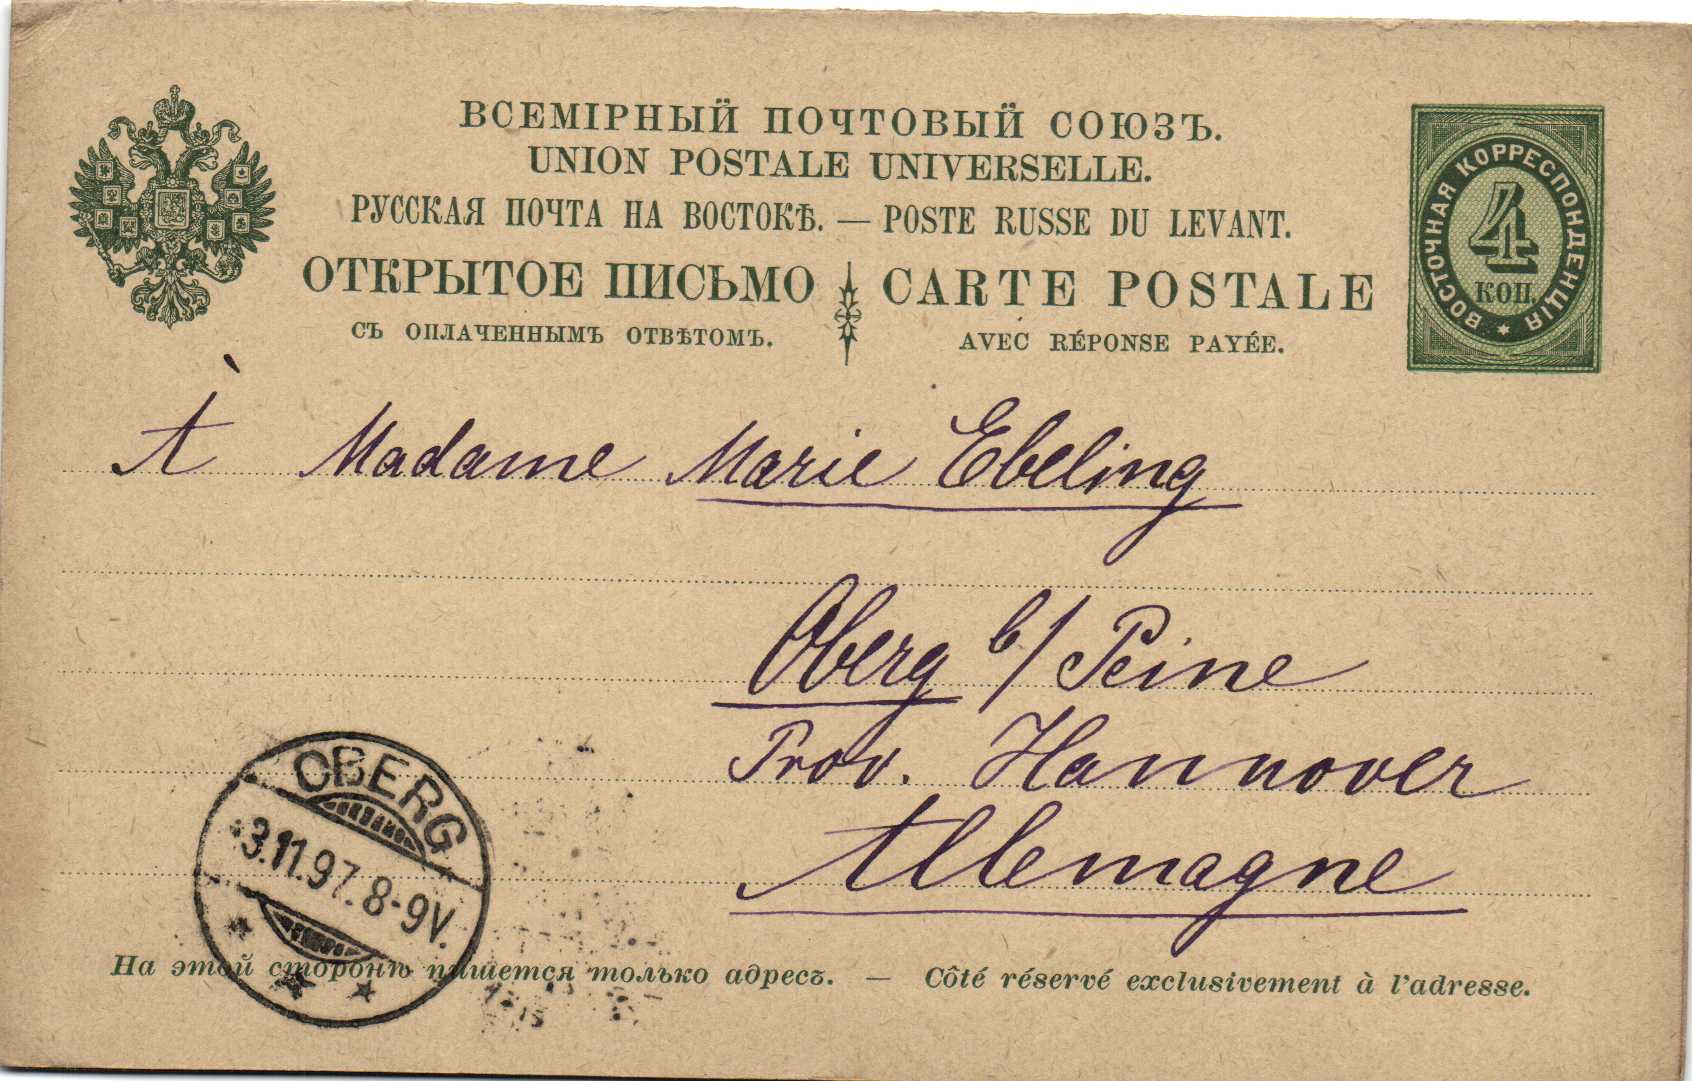 ВСЕМІРНЫЙ ПОЧТОВЫЙ СОЮЗЪ.
UNION POSTALE UNIVERSELLE.
РУССКАЯ ПОЧТА НА ВОСТОКѢ. — POSTE RUSSE DU LEVANT.
ОТКРЫТОЕ ПИСЬМО CARTE POSTALE
СЪ ОПЛАЧЕННЫМЪ ОТВѢТОМЪ. AVEC RÉPONSE PAYÉE.
ВОСТОЧНАЯ КОРРЕСПОНДЕНЦІЯ
4
КОП.
À Madame Marie Ebeling
Oberg b/ Peine
Prov. Hannover
Allemagne
OBERG
3.11.97.8-9V.
На этой сторонѣ пишется только адресъ. — Côté réservé exclusivement à l'adresse.